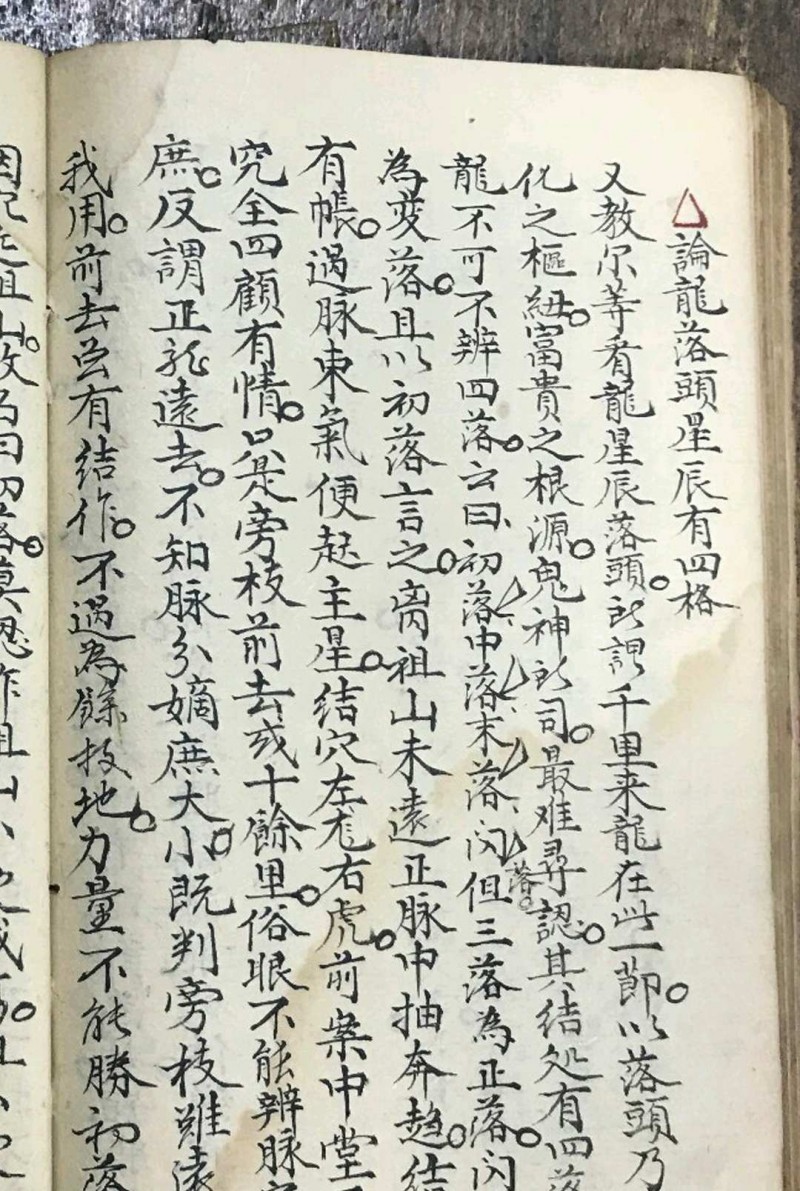 論龍落頭星辰有四格
又教尔等看龍星辰落頭。所謂千里来龍在此一節。以落頭乃
化之樞紐。富貴之根源。鬼神所司。最难尋認。其結処有四落
龍不可不辨四落。云曰初落中落末落闪落。但三落為正落。闪
為变落。且以初落言之。离祖山未遠正脉中抽奔趋。結
有帳。過脉束氣便起主星。結穴左龙右虎。前案中堂
究全四顧有情。只是旁枝前去或十餘里。俗眼不能辨脉
庶。反謂正龙遠去。不知脉分嫡庶大小。既判旁枝雖遠
我用。前去总有結作。不過為餘枝地。力量不能勝初落
祖山。故名曰初落。莫